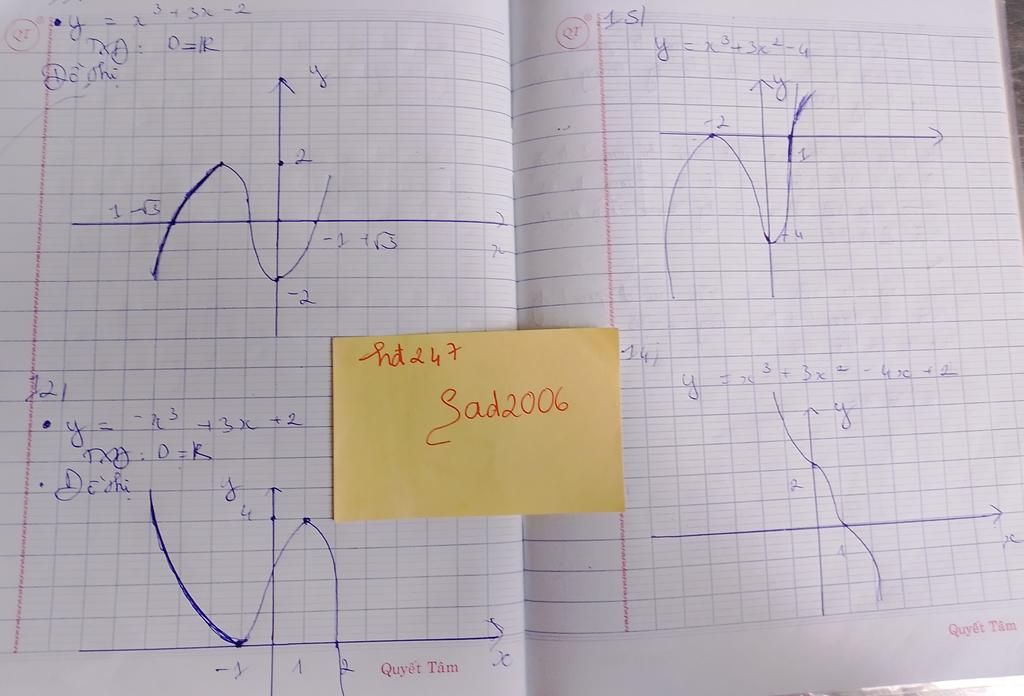 QT
• y = x³ + 3x - 2
TXĐ: D = ℝ
Đồ thị
y
2
1 -√3
-1 +√3
x
-2
12/
• y = -x³ + 3x + 2
TXĐ: D = ℝ
• Đồ thị
y
4
-1
1
2
x
Quyết Tâm
hđ247
Sad2006
QT
15/
y = x³ + 3x² - 4
y
-2
1
-4
14;
y = x³ + 3x² - 4x + 2
y
2
1
x
Quyết Tâm